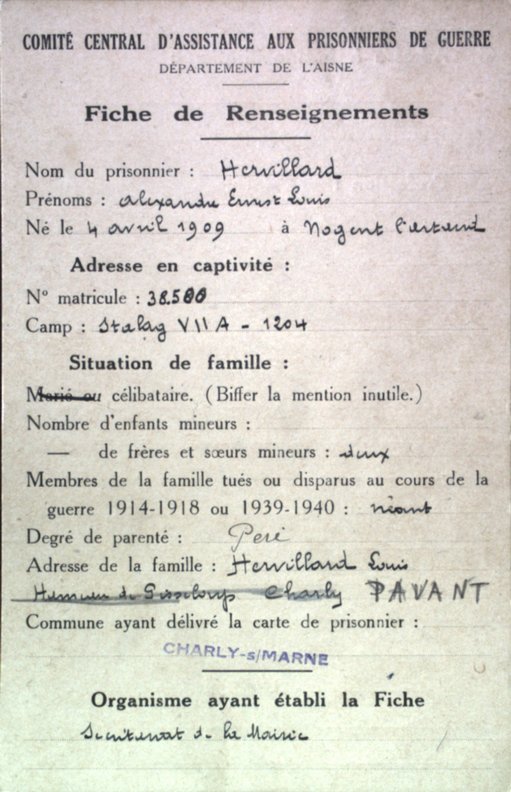 COMITÉ CENTRAL D'ASSISTANCE AUX PRISONNIERS DE GUERRE
DÉPARTEMENT DE L'AISNE
Fiche de Renseignements
Nom du prisonnier : Hervillard
Prénoms : Alexandre Ernest Louis
Né le 4 avril 1909 à Nogent l'artaud
Adresse en captivité :
N° matricule : 38.500
Camp : Stalag VII A - 1204
Situation de famille :
Marié ou célibataire. (Biffer la mention inutile.)
Nombre d'enfants mineurs :
— de frères et sœurs mineurs : deux
Membres de la famille tués ou disparus au cours de la
guerre 1914-1918 ou 1939-1940 : néant
Degré de parenté : Père
Adresse de la famille : Hervillard Louis
Charly PAVANT
Commune ayant délivré la carte de prisonnier :
CHARLY-s/MARNE
Organisme ayant établi la Fiche
Secrétariat de la Mairie